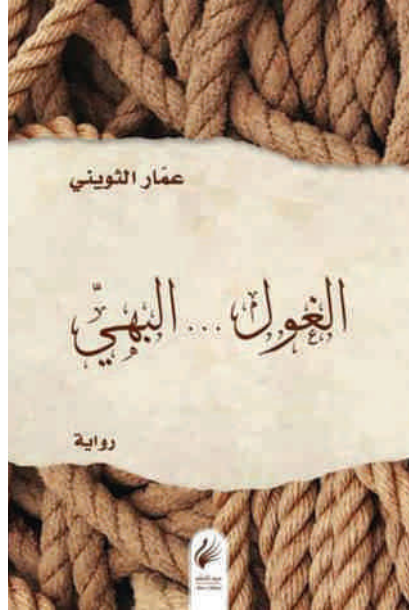 عمّار الثويني
الغول... البهيّ
رواية